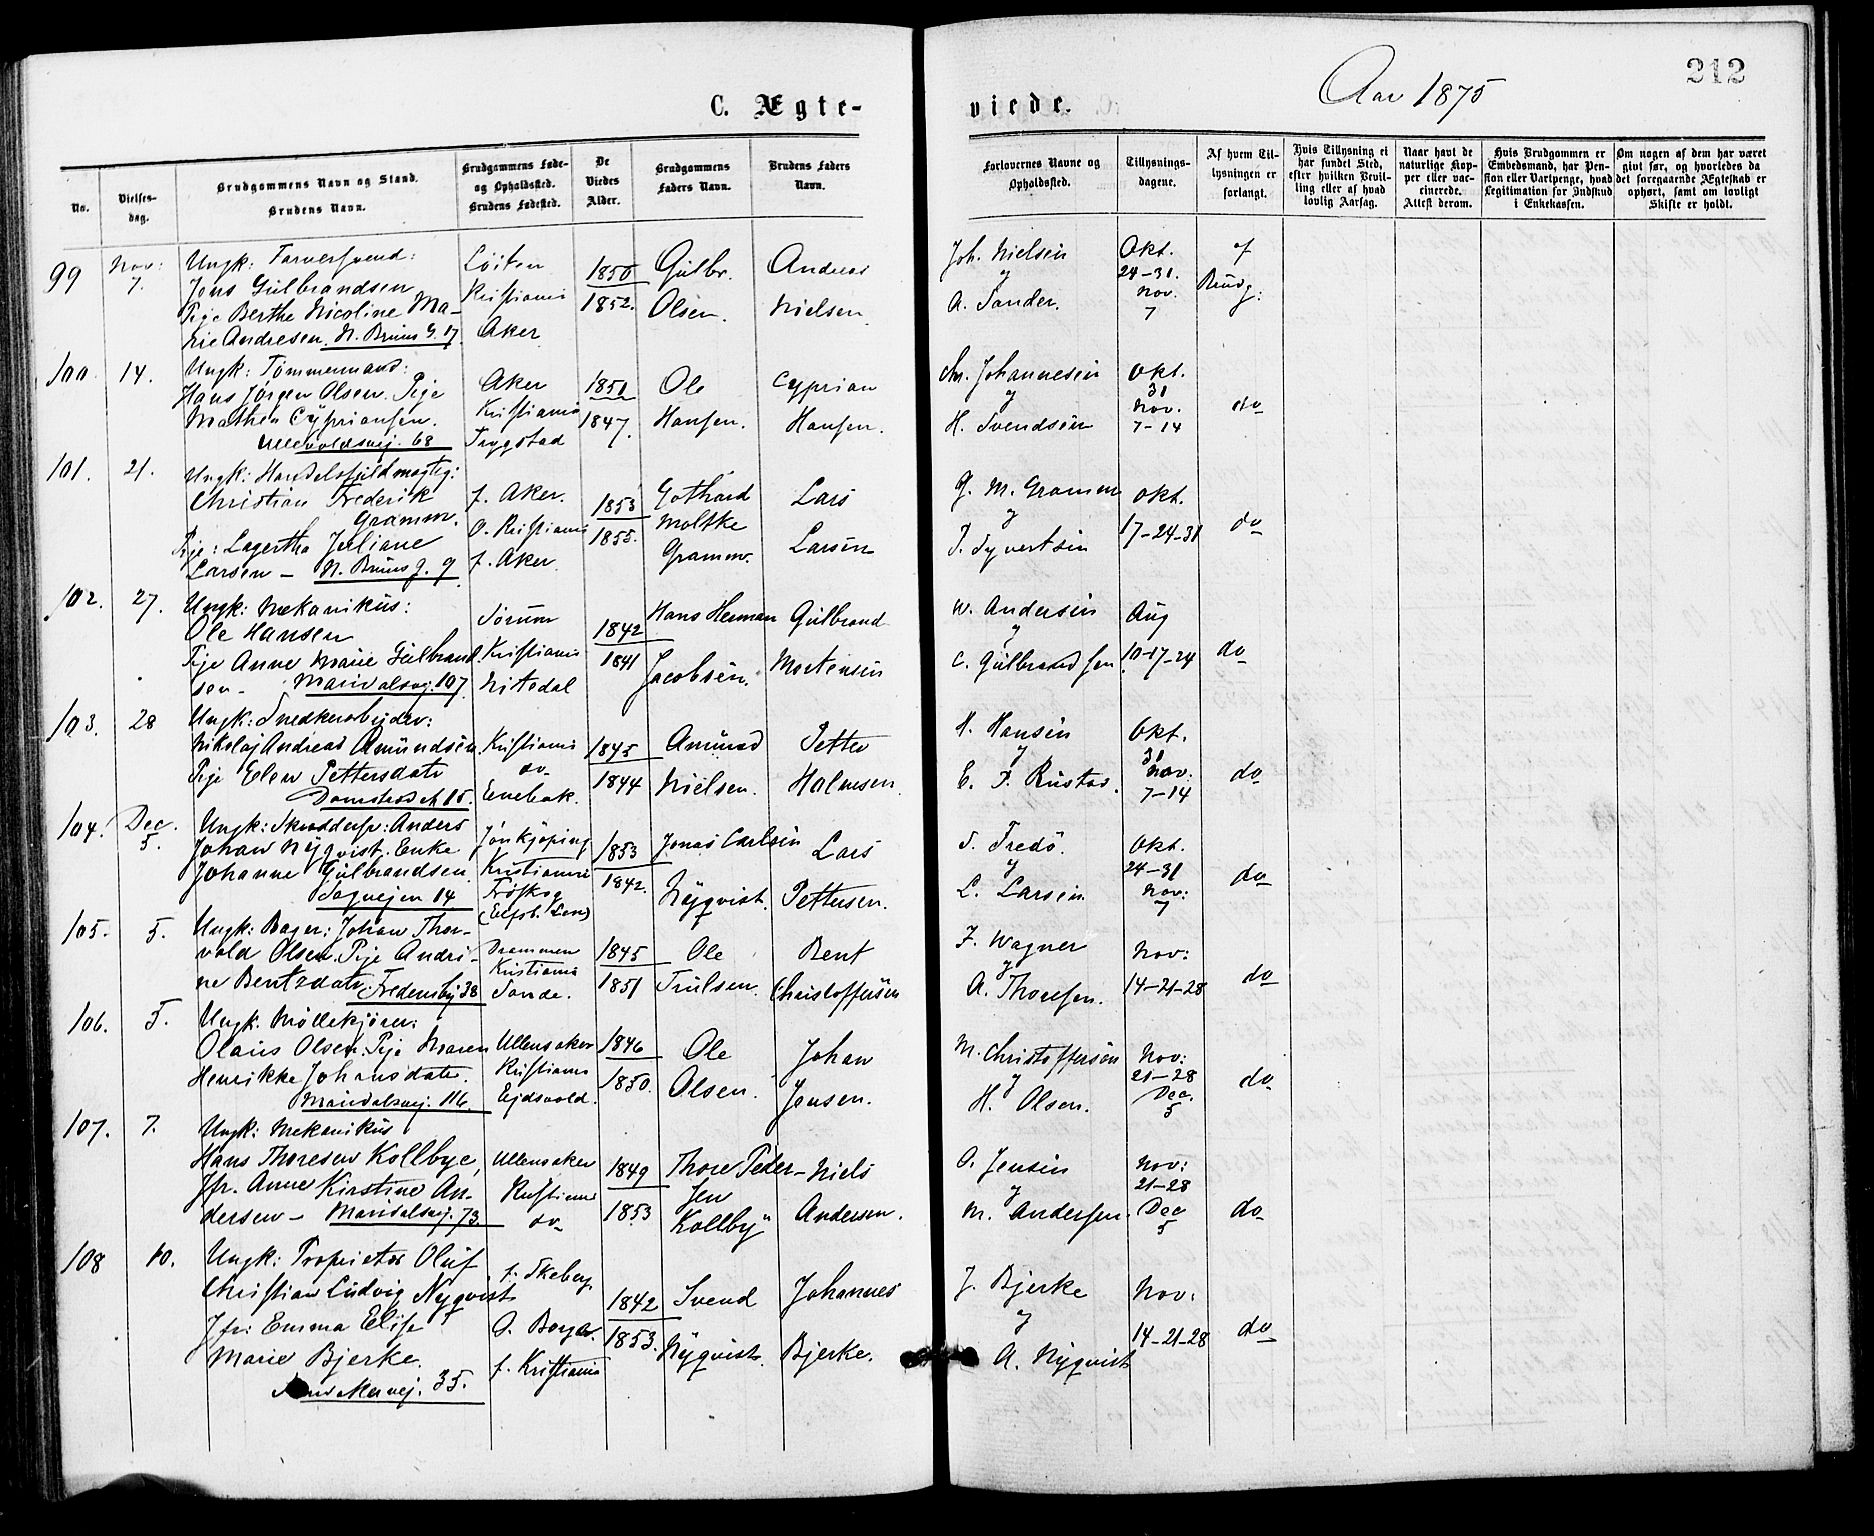 212
Aar 1875
C. Ægte-
viede.
No.
Vielses-
dag.
Brudgommens Navn og Stand.
Brudens Navn.
Brudgommens Føde-
og Opholdssted.
Brudens Fødested.
De
Viedes
Alder.
Brudgommens
Faders Navn.
Brudens Faders
Navn.
Forlovernes Navne og
Opholdssted.
Tillysnings-
dagene.
Af hvem Til-
lysningen er
forlangt.
Hvis Tillysning ei
har fundet Sted,
efter hvilken Bevil-
ling eller af hvad
lovlig Aarsag.
Naar havt de
naturlige Kop-
per eller vac-
cinerede.
Attest derom.
Hvis Brudgommen er
Embedsmand, har Pen-
sion eller Vartpenge, hvad
Legitimation for Indskud
i Enkekassen.
Om nogen af dem har været
givt før, og hvorledes da
det foregaaende Ægteskab er
ophørt, samt om lovligt
Skifte er holdt.
99
Nov:
7.
Ungk: Farversvend:
Jons Gulbrandsen
Pige Berthe Nicoline Ma-
rie Andresen. N. Bruns G. 17
Löiten
Kristiania
Aker
1850
1852.
Gulbr.
Olsen.
Andreas
Nielsen
Joh. Nielsen
og
A. Sander.
Okt.
24-31.
Nov.
7
af
Brudg:
100
14.
Ungk: Tömmermand:
Hans Jörgen Olsen. Pige
Mathea Cypriansen.
Ullevoldsvej. 68
Aker
Kristiania
Trygstad
1851
1847.
Ole
Hansen.
Cyprian
Hansen.
Chr. Johannesen
og
H. Svendsen
Okt.
31
Nov.
7-14
do
101.
21.
Ungk: Handelsfuldmægtig:
Christian Frederik
Gramm.
Pige: Lagertha Juliane
Larsen – N. Bruns g. 9
f. Aker.
O. Kristiania
f. Aker.
1853
1855.
Gothard
Moltke
Gramm.
Lars
Larsen
G. M. Gramm
og
P. Syvertsen
Okt.
17-24-31
do
102.
27.
Ungk: Mekanikus:
Ole Hansen
Pige Anne Marie Gulbrand
sen – Maridalsvej. 107
Sörum
Kristiania
Nitedal
1842
1841
Hans Herman
Jacobsen.
Gulbrand
Mortensen
W. Andersen
og
C. Gulbrandsen
Aug
10-17-24
do
103.
28
Ungk: Snedkerarbejder:
Nikolaj Andreas Amundsen
Pige Ellen Pettersdatr
Damstredet 15.
Kristiania
do
Enebak.
1845
1844
Amund
Nielsen.
Petter
Halmsen.
H. Hansen
og
E. F. Rustad.
Okt.
31
Nov.
7-14
do
104.
Dec.
5.
Ungk: Skræddersv: Anders
Johan Nyqvist. Enke
Johanne Gulbrandsen
Sagvejen 14
Jönkjöping
Kristiania
Fröskog
(Elfsb. Len)
1853
1842.
Jonas Carlsen
Nyqvist.
Lars
Pettersen.
S. Fredö.
og
L. Larsen
Okt.
24-31
Nov:
7
do
105.
5.
Ungk: Bager: Johan Thor-
vald Olsen. Pige Andri-
ne Bentsdatr. Fredensbg 38
Drammen
Kristiania
Sande.
1845
1851
Ole
Trulsen.
Bent
Christoffersen
F. Wagner
og
A. Thoresen.
Nov:
14-21-28
do
106.
5.
Ungk. Möllekjörer:
Olaus Olsen. Pige Maren
Henrikke Johansdatr.
Maridalsvej: 116.
Ullensaker
Kristiania
Ejdsvold.
1846
1850.
Ole
Olsen.
Johan
Jensen.
M. Christoffersen
og
H. Olsen.
Nov:
21-28
Dec.
5
do
107.
7.
Ungk: Mekanikus
Hans Thoresen Kollbye,
Jfr. Anne Kirstine An-
dersen – Maridalsvej. 73
Ullensaker
Kristiania
do
1849
1853
Thore Peder-
sen
Kollby
Niels
Andersen.
O. Jensen
og
M. Andersen.
Nov:
21-28
Dec
5
do
108
10.
Ungk: Proprietær Oluf
Christian Ludvig Nyqvist
Jfr: Emma Elise
Marie Bjerke.
vej. 35.
f. Skeberg.
O. Borge.
f. Kristiania
1842
1853.
Svend
Nyqvist.
Johannes
Bjerke.
J. Bjerke
og
A. Nyqvist
Nov:
14-21-28
do